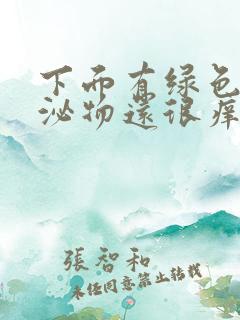 下面有绿色
泌物还很痒
張智和
未经同意禁止转载